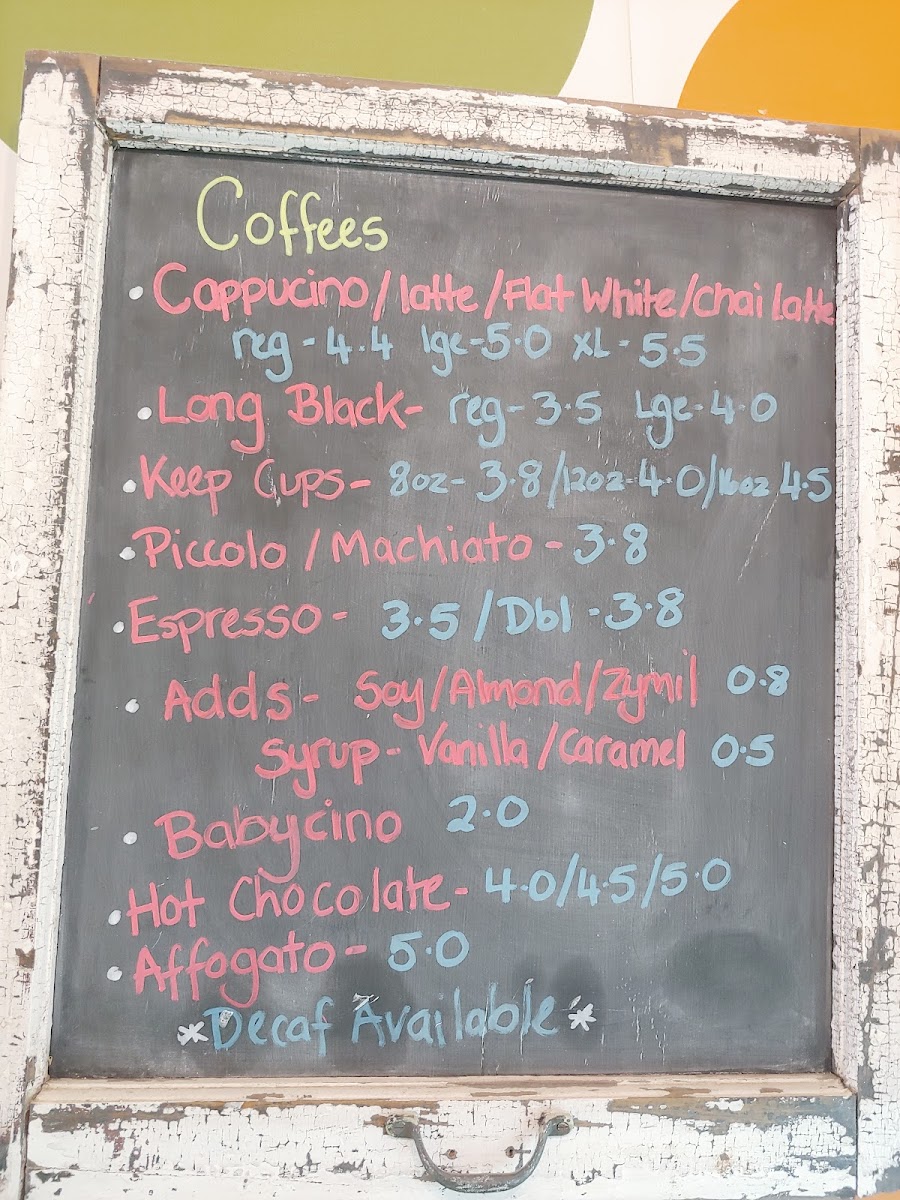 Coffees
• Cappucino / latte / Flat White / chai latte
reg - 4.4 lge - 5.0 XL - 5.5
• Long Black - reg - 3.5 Lge - 4.0
• Keep Cups - 8oz - 3.8 / 12oz - 4.0 / 16oz 4.5
• Piccolo / Machiato - 3.8
• Espresso - 3.5 / Dbl - 3.8
• Adds - Soy / Almond / Zymil 0.8
Syrup - Vanilla / Caramel 0.5
• Babycino 2.0
• Hot Chocolate - 4.0 / 4.5 / 5.0
• Affogato - 5.0
* Decaf Available *